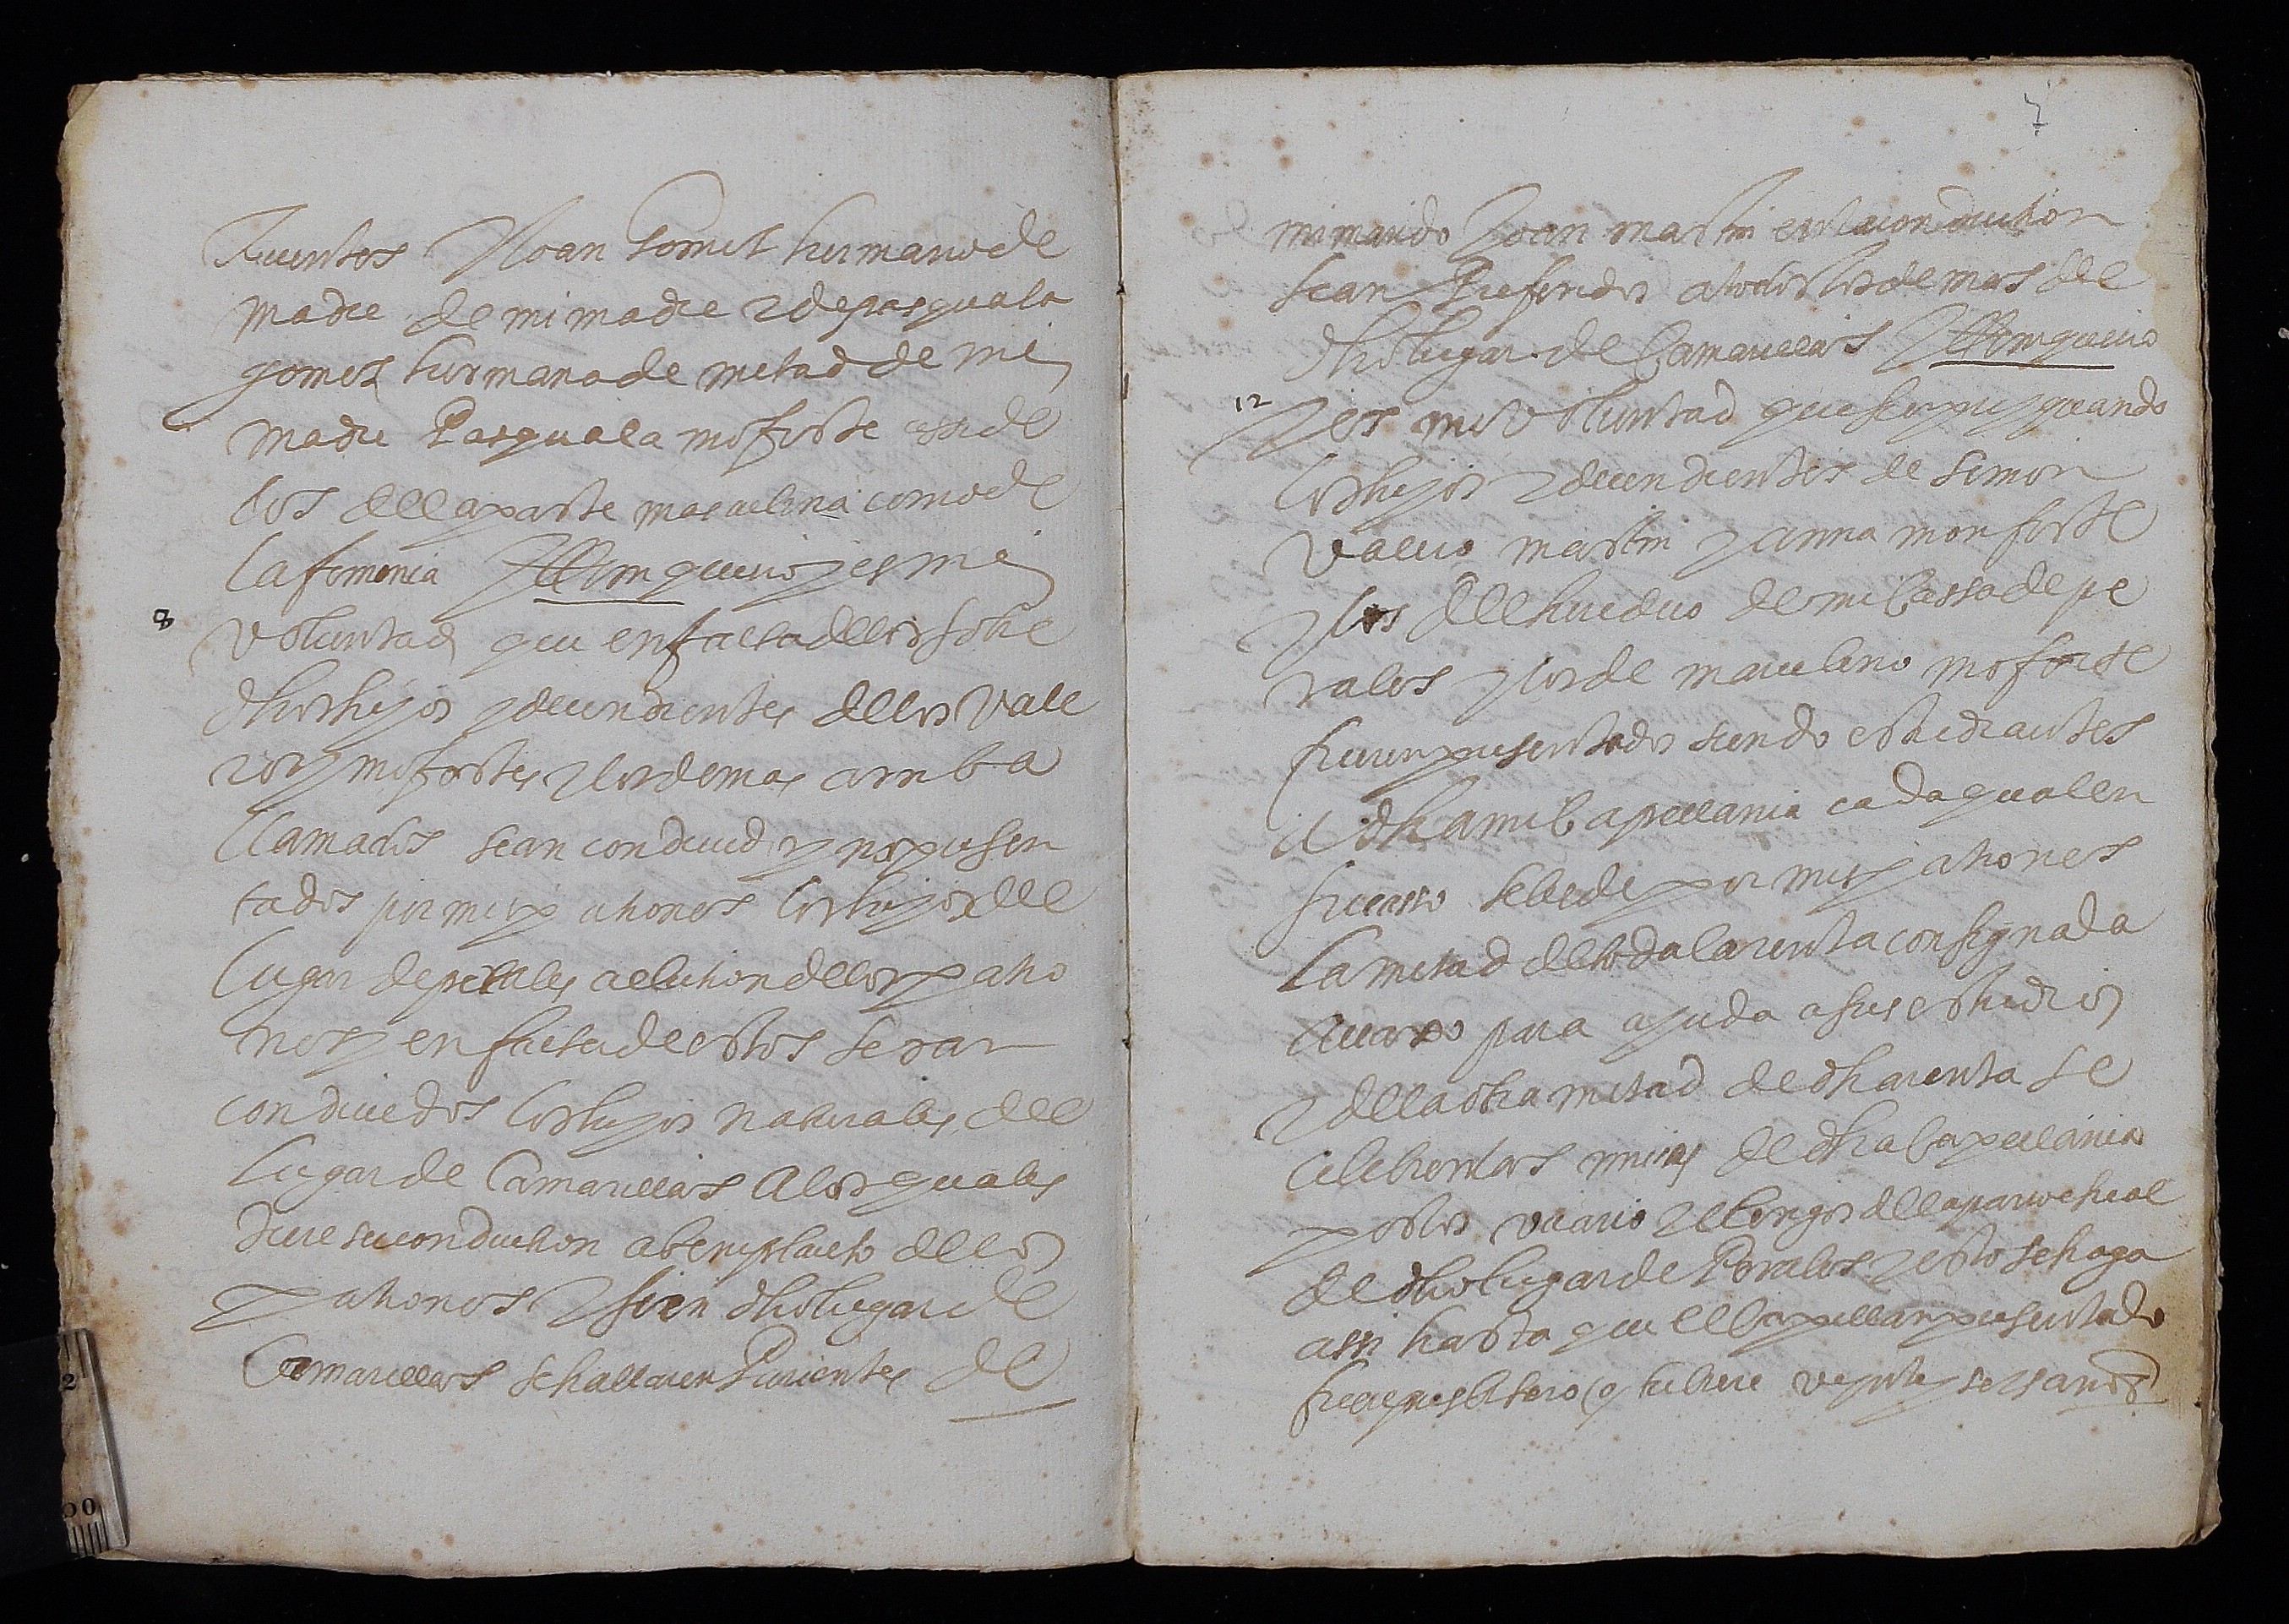 fuentes Y Joan Gomez hermano de
madre de mi madre y de pasquala
gomez hermana de metad de mi
madre Pasquala mõforte assi de
los dela parte masculina como de
la femenia Yttem quiero y es mi
8
voluntad que en falta delos sobre
dhos hijos y decendientes delos Vale
ros y mõfortes y los demas arriba
llamados sean conduzid y no presen
tados por mis pationes los hijos del
lugar de perales a election delos patro
nos y en falta de estos seran
conduzidos los hijos naturales del
lugar de Camarillas A los quales
dure su conduction a beneplacito delos
patrones Y si en dho lugar de
Camarillas se hallaren Parientes de
7
mi marido Joan martin en tal conduction
sean Preferidos a todos los demas del
dho lugar de Camarillas Yttem quiero
12
Y es mi Voluntad que siempre y quando
los hijos y decendientes de simon
Valero martin y anna monforte
y los del heredero de mi Cassa de pe
rales y los de marcelino mõforte
fueren presentados siendo estudiantes
a dha mi Capellania cada qual en
su casso se le de por mis patrones
la metad de toda la renta consignada
para ayuda a sus estudios
y de la otra metad de dha renta se
celebren las missas de dha Capellania
por los vicario y clerigos dela parrochial
de dho lugar de Perales y esto se haga
assi hasta que el Capellan presentado
fuere presbitero (o tubiere veynte y seys anos